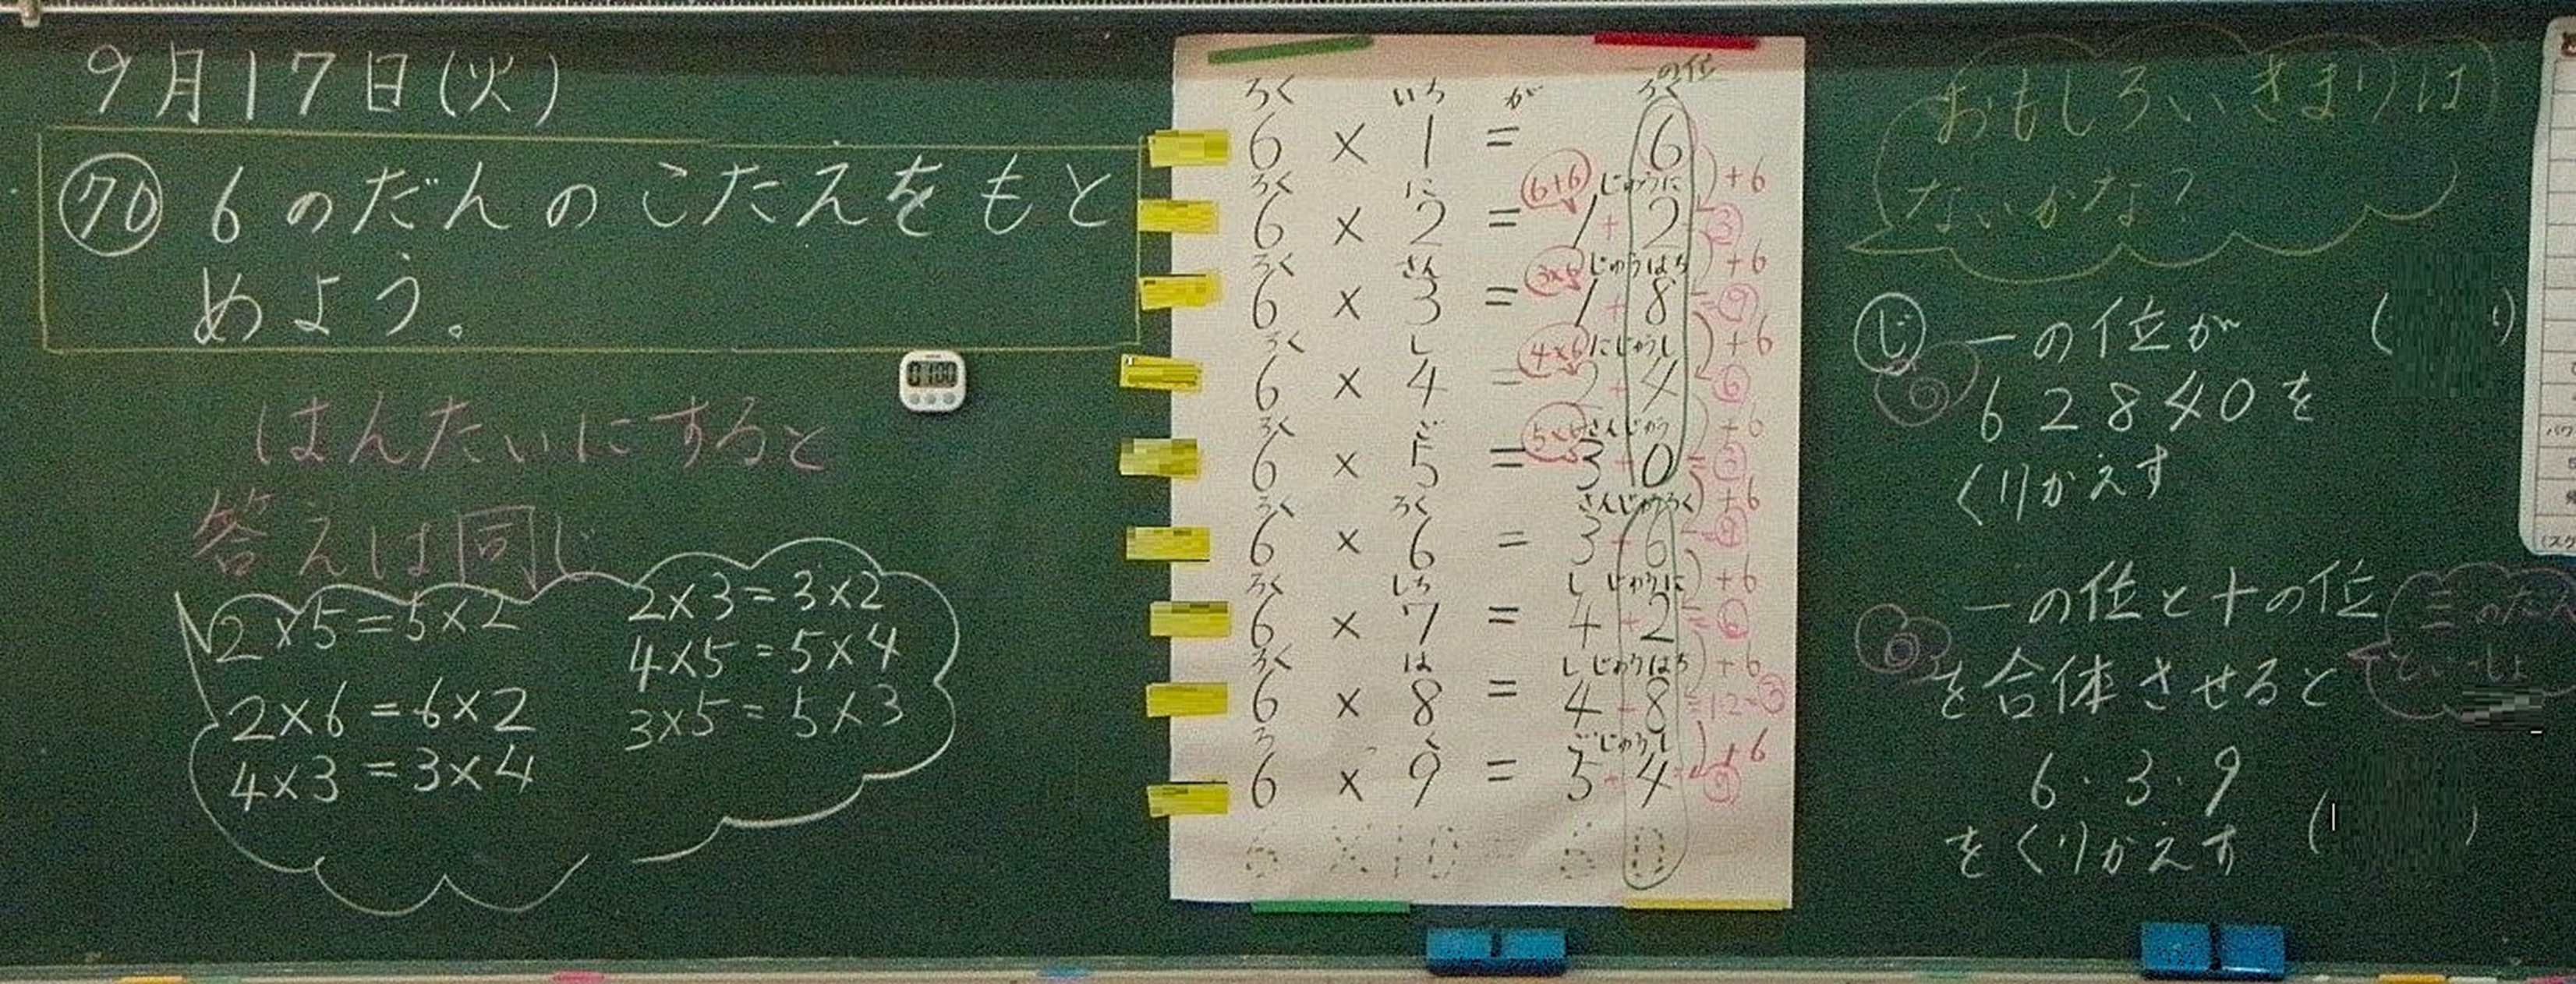 9月17日(火)
70 6のだんのこたえをもと
めよう。
0100
はんたいにすると
答えは同じ
2×5=5×2
2×6=6×2
4×3=3×4
2×3=3×2
4×5=5×4
3×5=5×3
一の位
ろく いち が ろく
6 × 1 = 6
+6
ろく に 6+6 じゅうに
6 × 2 = 1+2 ③
+6
ろく さん 3×6 じゅうはち
6 × 3 = 1+8=⑨
+6
ろく し 4×6 にじゅうし
6 × 4 = 2+4 ⑥
+6
ろく ご 5×6 さんじゅう
6 × 5 = 3+0=③
+6
ろく ろく さんじゅうろく
6 × 6 = 3+6=⑨
+6
ろく しち しじゅうに
6 × 7 = 4+2=⑥
+6
ろく は しじゅうはち
6 × 8 = 4+8=12=③
+6
ろっ く ごじゅうし
6 × 9 = 5+4 ⑨
6 × 10 = 60
おもしろいきまりは
ないかな?
じ 一の位が
62840を
くりかえす
一の位と十の位
を合体させると
6・3・9
をくりかえす
三のだん
といっしょ